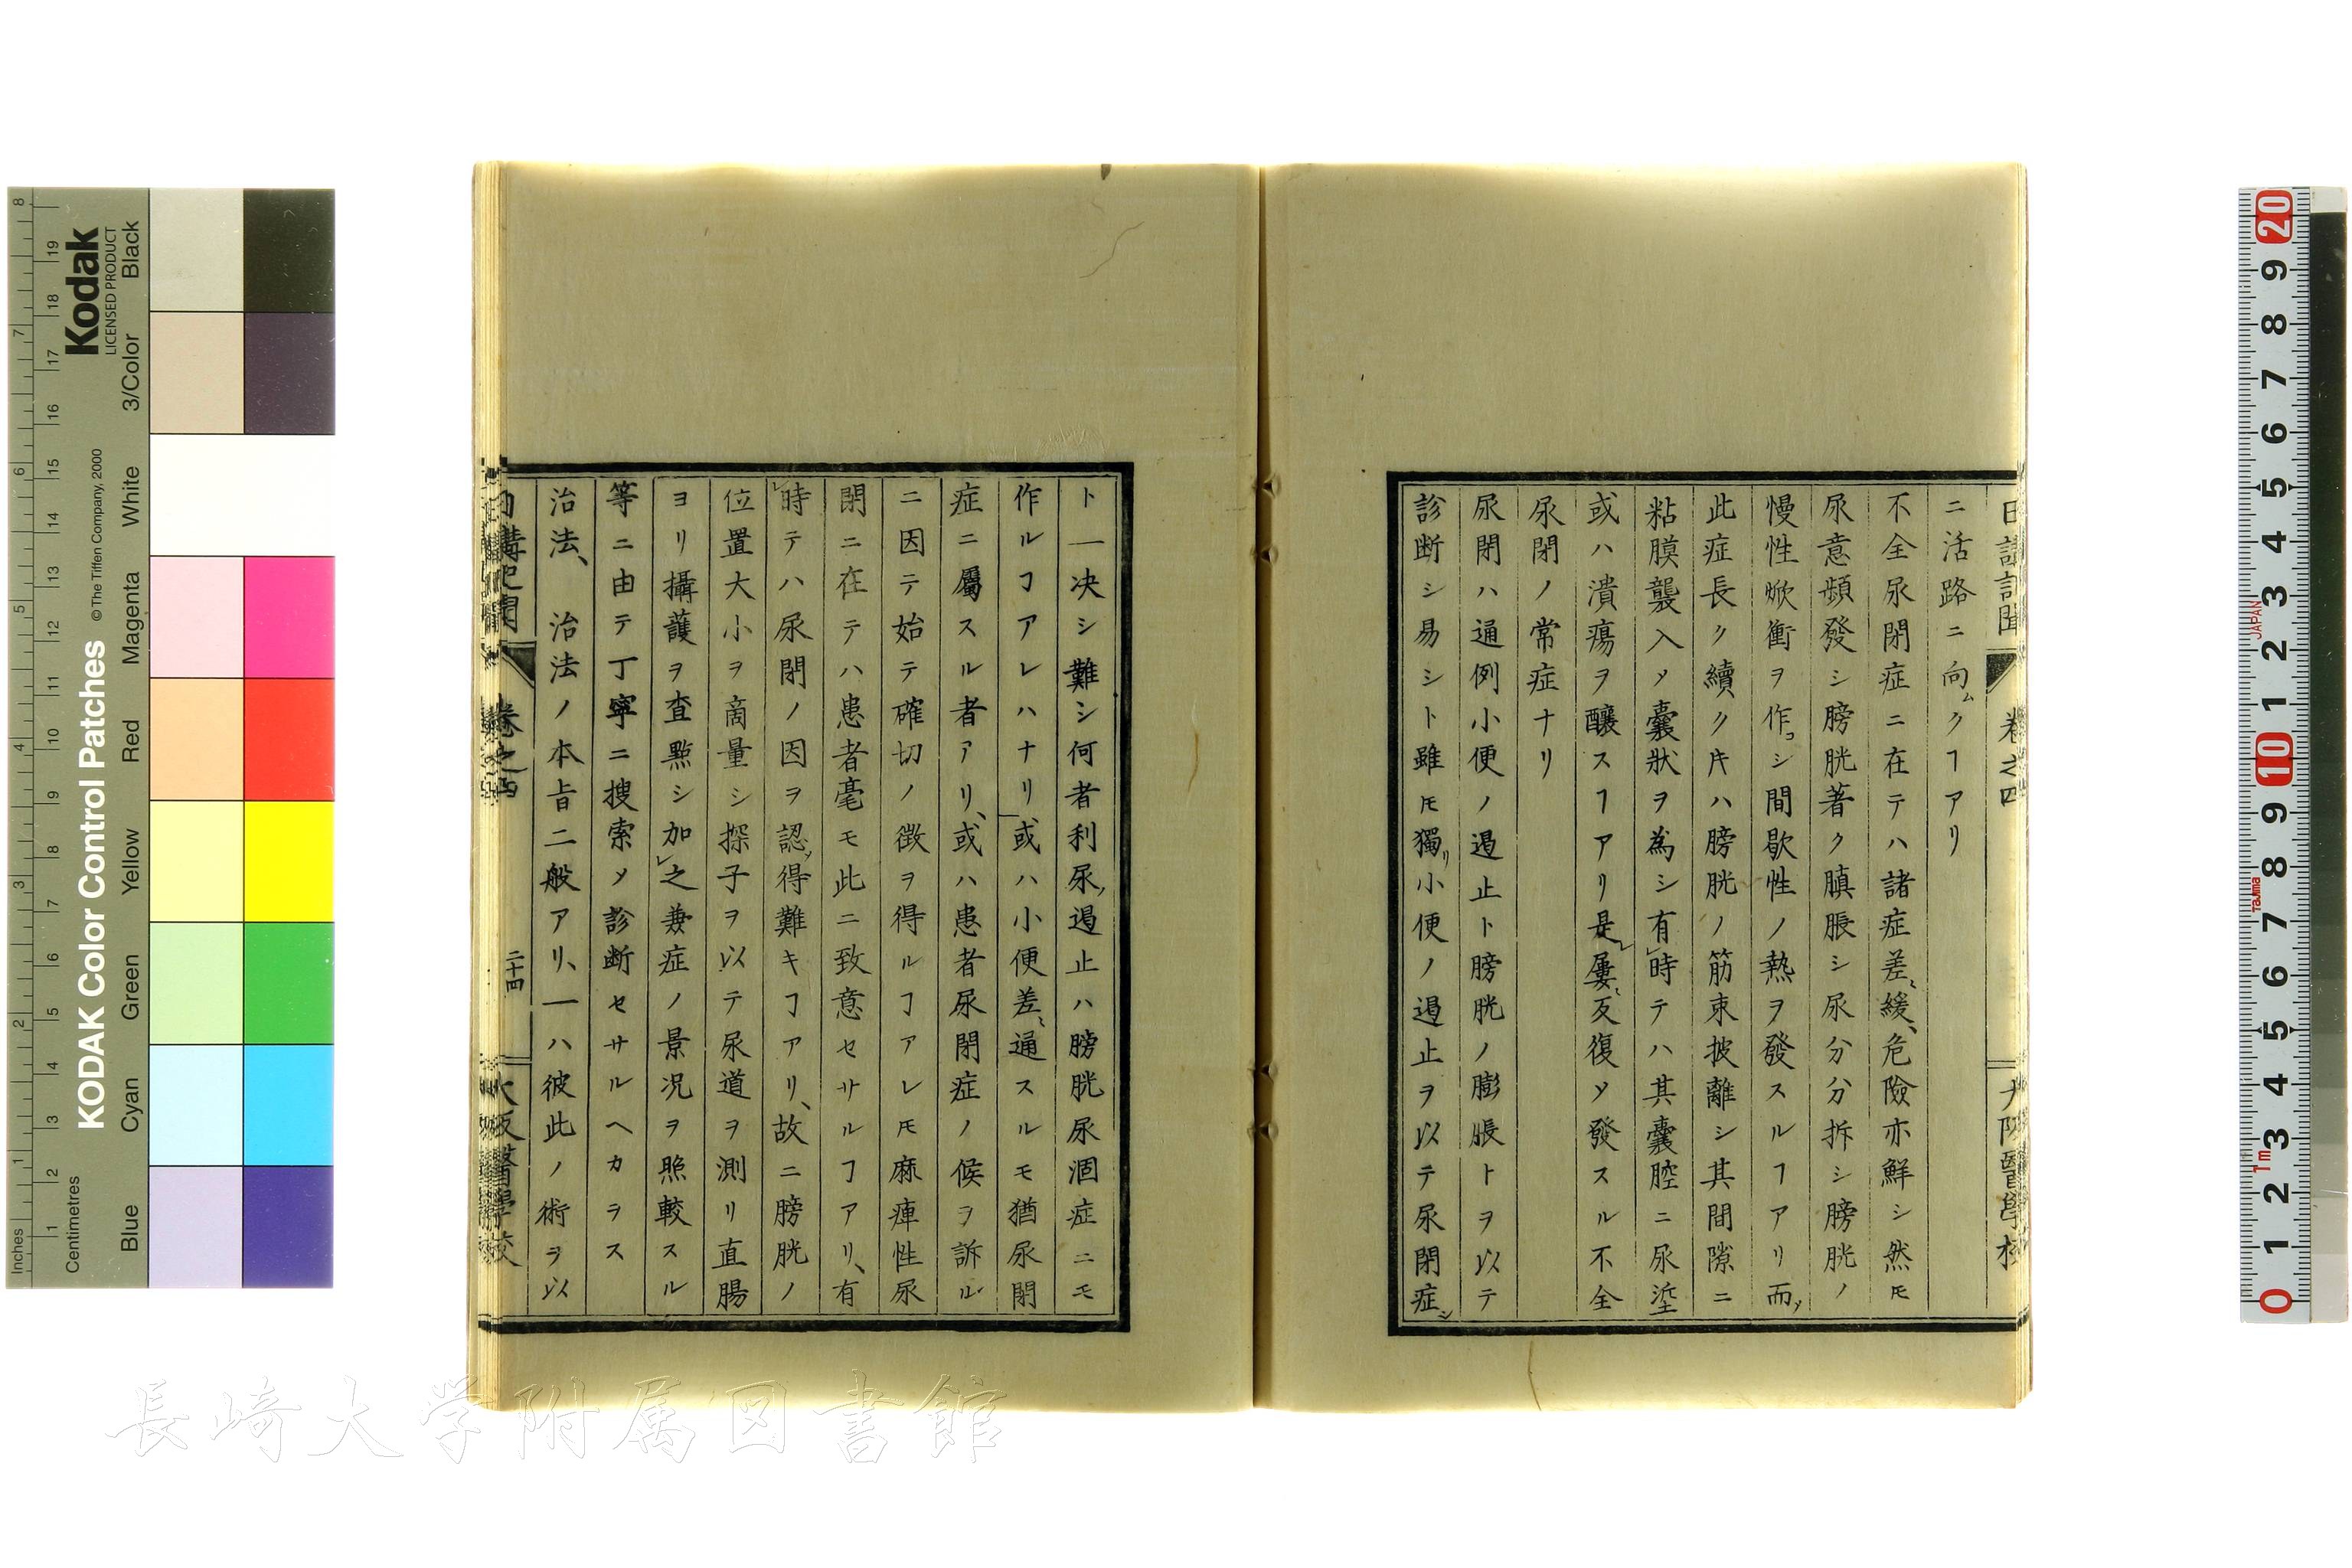 日講記聞 卷之四 大阪醫學校
ニ活路ニ向ムクヿアリ
不全尿閉症ニ在テハ諸症差〻緩、危險亦鮮シ然𪜈
尿意頻發シ膀胱著ク䐜脹シ尿分分拆シ膀胱ノ
慢性焮衝ヲ作コシ間歇性ノ熱ヲ發スルヿアリ而ノ
此症長ク續クキハ膀胱ノ筋束披離シ其間隙ニ
粘膜襲入メ囊狀ヲ為シ有レ時テハ其囊腔ニ尿塗
或ハ潰瘍ヲ釀スヿアリ是レ屢〻反復ソ發スル不全
尿閉ノ常症ナリ
尿閉ハ通例小便ノ遏止ト膀胱ノ膨脹トヲ以テ
診断シ易シト雖𪜈獨リ小便ノ遏止ヲ以テ尿閉症シ
ト一决シ難シ何者利尿ノ遏止ハ膀胱尿涸症ニモ
作ルヿアレハナリ或ハ小便差〻通スルモ猶尿閉
症ニ屬スル者アリ、或ハ患者尿閉症ノ候ヲ訴ル
ニ因テ始テ確切ノ徴ヲ得ルヿアレ𪜈麻痺性尿
閉ニ在テハ患者毫モ此ニ致意セサルヿアリ、有
レ時テハ尿閉ノ因ヲ認メ得難キヿアリ、故ニ膀胱ノ
位置大小ヲ商量シ探子ヲ以テ尿道ヲ測リ直腸
ヨリ攝護ヲ査㸃シ加レ之兼症ノ景况ヲ照較スル
等ニ由テ丁寧ニ搜索メ診断セサルヘカラス
治法、 治法ノ本旨二般アリ、一ハ彼此ノ術ヲ以
日講記聞 卷之四 二十四 大阪醫學校
Kodak
LICENSED PRODUCT
KODAK Color Control Patches
©The Tiffen Company, 2000
Inches
Centimetres
Blue Cyan Green Yellow Red Magenta White 3/Color Black
長崎大学附属図書館